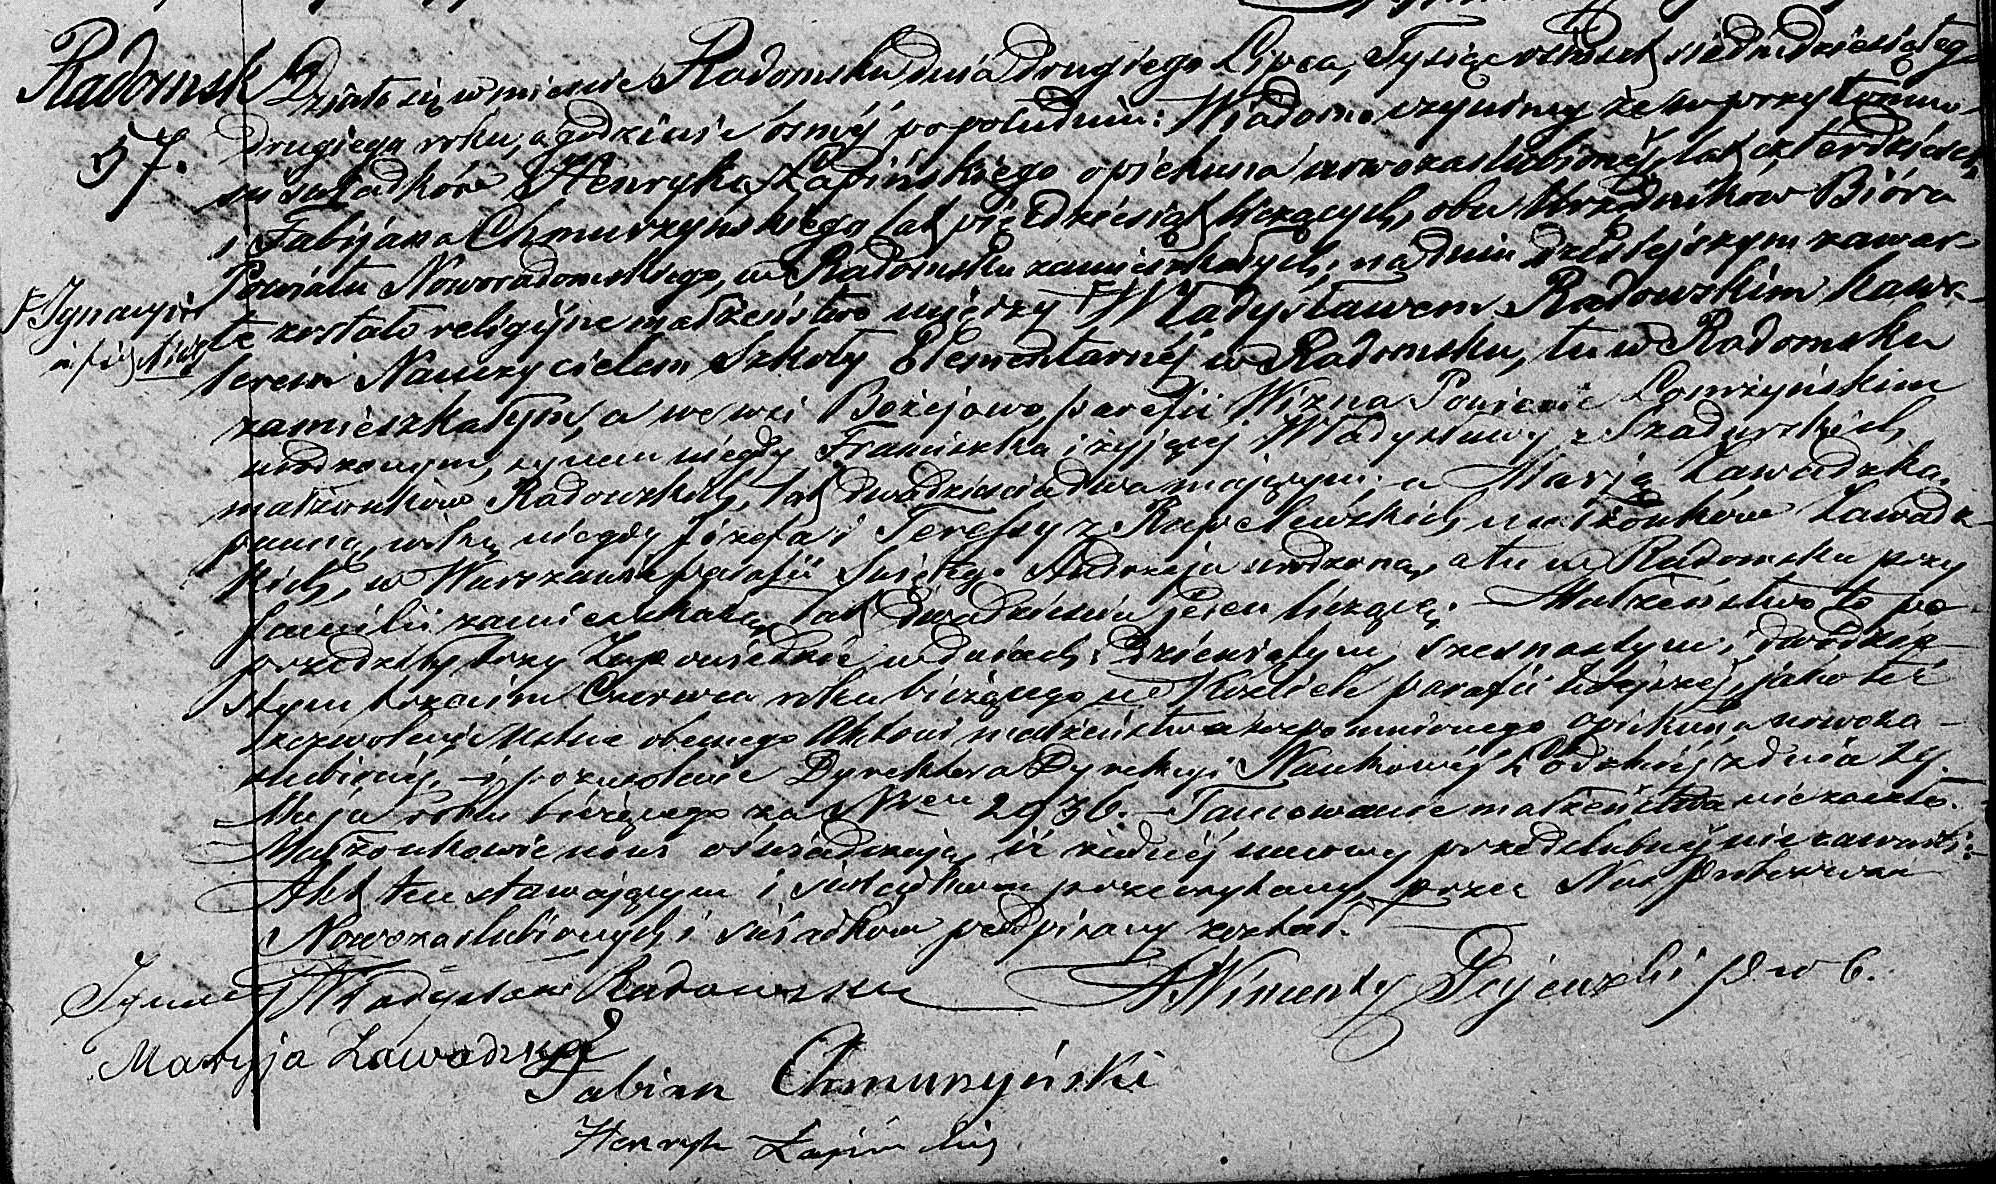 Radomsk
57.
Działo się w mieście Radomsku dnia drugiego Lipca, Tysiąc ośmset siedmdziesiątego
drugiego roku, o godzinie ósmej po południu: Wiadomo czynimy że w przytomno-
ści świadków Henryka Łapińskiego opiekuna nowozaślubionej, lat czterdzieści,
i Fabijana Chmurzyńskiego lat pięćdziesiąt liczących, obu Urzędników Bióra
Powiatu Noworadomskiego, w Radomsku zamieszkałych; na dniu dzisiejszym zawar-
Ignacym
te zostało religijne małżeństwo między Władysławem Radowskim kawa-
lerem Nauczycielem Szkoły Elementarnej w Radomsku, tu w Radomsku
zamieszkałym, a we wsi Bożejewo parafii Wizna Powiecie Łomżyńskim
urodzonym, synem niegdy Franciszka i żyjącej Władysławy z Skadurskich
małżonków Radowskich, lat dwadzieścia dwa mającym; a Marją Zawadzką
panną, córką niegdy Józefa i Teressy z małżonków Zawadz-
kich, w Warszawie parafii Świętego Andrzeja urodzoną, a tu w Radomsku przy
familii zamieszkałą, lat dwadzieścia jeden liczącą. Małżeństwo to po-
przedziły trzy Zapowiedzie, w dniach: Dziewiątym, szesnastym i dwudzie-
stym trzecim Czerwca roku bieżącego w Kościele parafii tutejszej, jako też
zezwolenie ustne obecnego Aktowi małżeństwa wspomnionego opiekuna nowoza-
ślubionej, i pozwolenie Dyrektora Dyrekcyi Naukowej Łódzkiej z dnia 29.
Maja roku bieżącego za Nrem 2936. Tamowanie małżeństwa nie zaszło.
Małżonkowie nowi oświadczają iż żadnej umowy przedślubnej nie zawarli:
Akt ten stawającym i świadkom przeczytany, przez Nas
Nowozaślubionych i świadków podpisany został.
Ignacy Władysław Radowski
Wincenty
Maryja Zawadzka
Fabian Chmurzyński
Henryk Łapiński